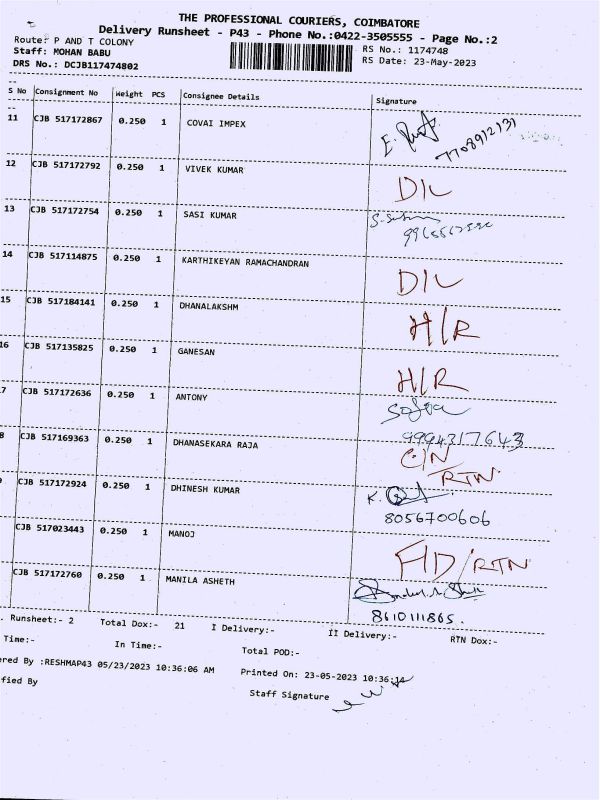 THE PROFESSIONAL COURIERS, COIMBATORE
Delivery Runsheet - P43 - Phone No.:0422-3505555 - Page No.:2
Route: P AND T COLONY
RS No.: 1174748
Staff: MOHAN BABU
RS Date: 23-May-2023
DRS No.: DCJB117474802
S No Consignment No Weight PCS Consignee Details Signature
11 CJB 517172867 0.250 1 COVAI IMPEX
12 CJB 517172792 0.250 1 VIVEK KUMAR D/L
13 CJB 517172754 0.250 1 SASI KUMAR
14 CJB 517114875 0.250 1 KARTHIKEYAN RAMACHANDRAN D/L
15 CJB 517184141 0.250 1 DHANALAKSHM H/R
16 CJB 517135825 0.250 1 GANESAN H/R
7 CJB 517172636 0.250 1 ANTONY
9994317643
8 CJB 517169363 0.250 1 DHANASEKARA RAJA C/N
RTN
CJB 517172924 0.250 1 DHINESH KUMAR K.
8056700606
CJB 517023443 0.250 1 MANOJ /RTN
CJB 517172760 0.250 1 MANILA ASHETH
8610111865.
. Runsheet:- 2 Total Dox:- 21 I Delivery:- II Delivery:- RTN Dox:-
Time:- In Time:- Total POD:-
ered By :RESHMAP43 05/23/2023 10:36:06 AM Printed On: 23-05-2023 10:36:
fied By Staff Signature